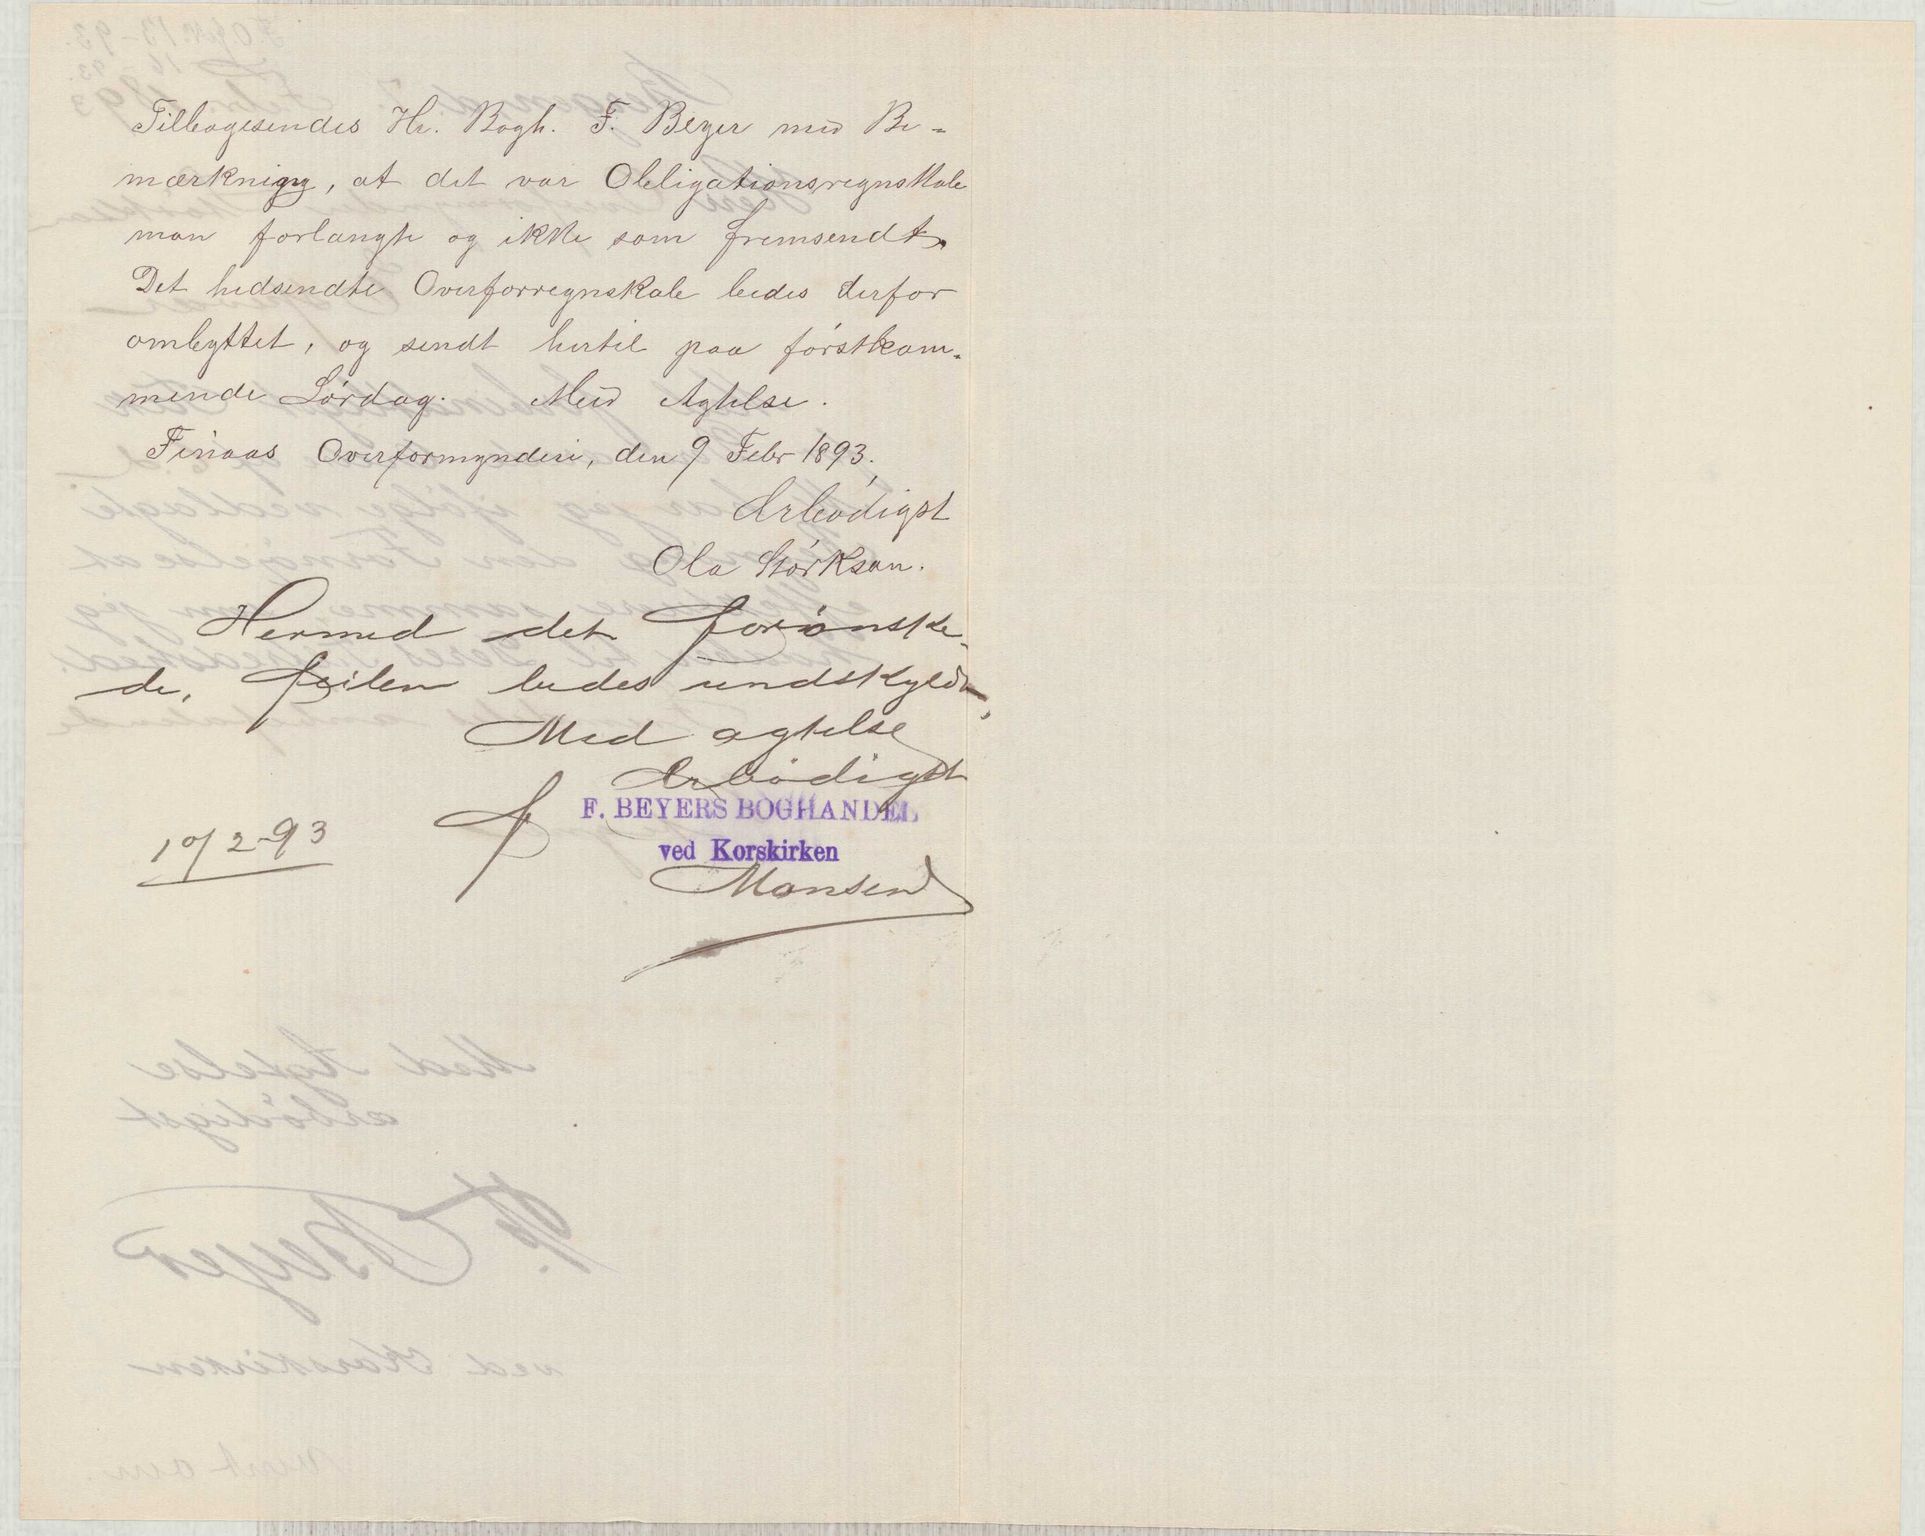 Tilbagesendes Hr. Bogh. F. Beyer med Be-
mærkning, at det var Obligationsregnskab
man forlangte og ikke som fremsendt.
Det hidsendte Overforregnskab bedes derfor
ombyttet, og sendt hertil paa førstkom-
mende Lørdag. Med Agtelse.
Finaas Overformynderi, den 9 Febr 1893.
Ærbødigst
Ola Størksen.
Hermed det forønske-
de, feilen bedes undskyldt,
Med agtelse
Ærbødigst
F. BEYERS BOGHANDEL
ved Korskirken
10/2-93
Monsen
Med Agtelse
ærbødigst
F. Beyer
ved Korskirken
Vend om.